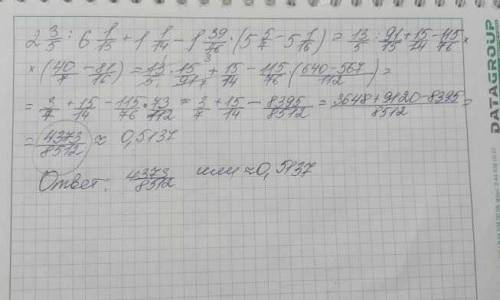 2 3/5 : 6 1/15 + 1 1/14 - 1 39/76 · (5 5/7 - 5 1/16) = 13/5 : 91/15 + 15/14 - 115/76 ×
× (40/7 - 81/16) = 13/5 · 15/91 + 15/14 - 115/76 (640-567/112) =
= 3/7 + 15/14 - 115/76 · 73/112 = 3/7 + 15/14 - 8395/8512 = 3648+9120-8395/8512 =
= 4373/8512 ≈ 0,5137
Ответ: 4373/8512 или ≈ 0,5137
DATAGROUP